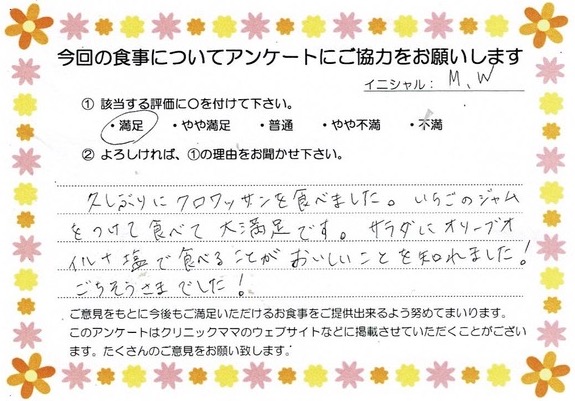 今回の食事についてアンケートにご協力をお願いします
イニシャル： M、W
① 該当する評価に〇を付けて下さい。
・満足 ・やや満足 ・普通 ・やや不満 ・不満
② よろしければ、①の理由をお聞かせ下さい。
久しぶりにクロワッサンを食べました。いちごのジャム
をつけて食べて大満足です。サラダにオリーブオ
イルナ塩で食べることがおいしいことを知れました！
ごちそうさまでした！
ご意見をもとに今後もご満足いただけるお食事をご提供出来るよう努めてまいります。
このアンケートはクリニックママのウェブサイトなどに掲載させていただくことがござい
ます。たくさんのご意見をお願い致します。